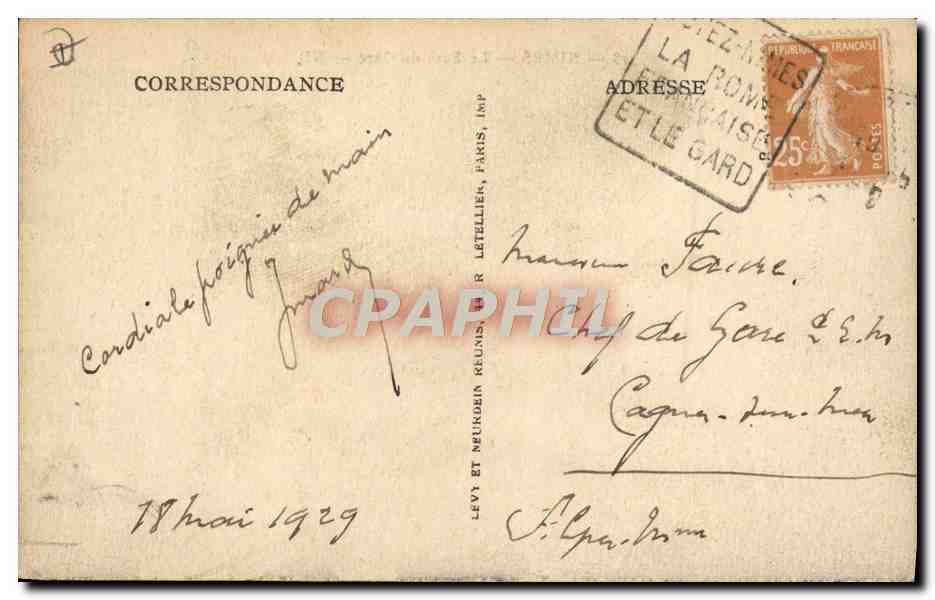 CORRESPONDANCE
ADRESSE
VISITEZ-NIMES
LA ROME
FRANÇAISE
ET LE GARD
REPUBLIQUE FRANÇAISE
25c
POSTES
Cordiale poignée de main
18 mai 1929
LEVY ET NEURDEIN REUNIS, RUE LETELLIER, PARIS, IMP
CPAPHIL
Monsieur Faure.
Chef de Gare P.L.M
Cagnes-sur-mer
Alpes-Mmes